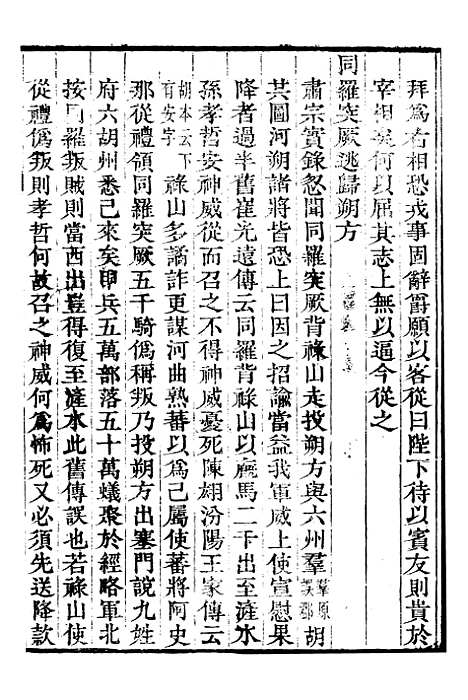 拜爲右相恐戎事固辭爵願以客從曰陛下待以賓友則貴於
宰相矣何以屈其志上無以逼今從之
同羅突厥逃歸朔方
肅宗實錄忽聞同羅突厥背祿山走投朔方與六州羣羣原誤郡胡
其圖河朔諸將皆恐上曰因之招諭當益我軍威上使宣慰果
降者過半舊崔光遠傳云同羅背祿山以廐馬二千出至滻水
孫孝哲安神威從而召之不得神威憂死陳翃汾陽王家傳云
胡本云下有安字祿山多譎詐更謀河曲熟蕃以爲己屬使蕃將阿史
那從禮領同羅突厥五千騎僞稱叛乃投朔方出塞門說九姓
府六胡州悉已來矣甲兵五萬部落五十萬蟻聚於經略軍北
按同羅叛賊則當西出豈得復至滻水此舊傳誤也若祿山使
從禮僞叛則孝哲何故召之神威何爲怖死又必須先送降款